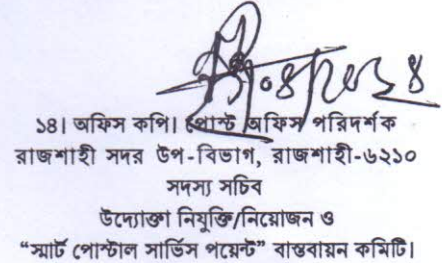 ১৪। অফিস কপি। পোস্ট অফিস পরিদর্শক
রাজশাহী সদর উপ-বিভাগ, রাজশাহী-৬২১০
সদস্য সচিব
উদ্যোক্তা নিযুক্তি/নিয়োজন ও
“স্মার্ট পোস্টাল সার্ভিস পয়েন্ট” বাস্তবায়ন কমিটি।